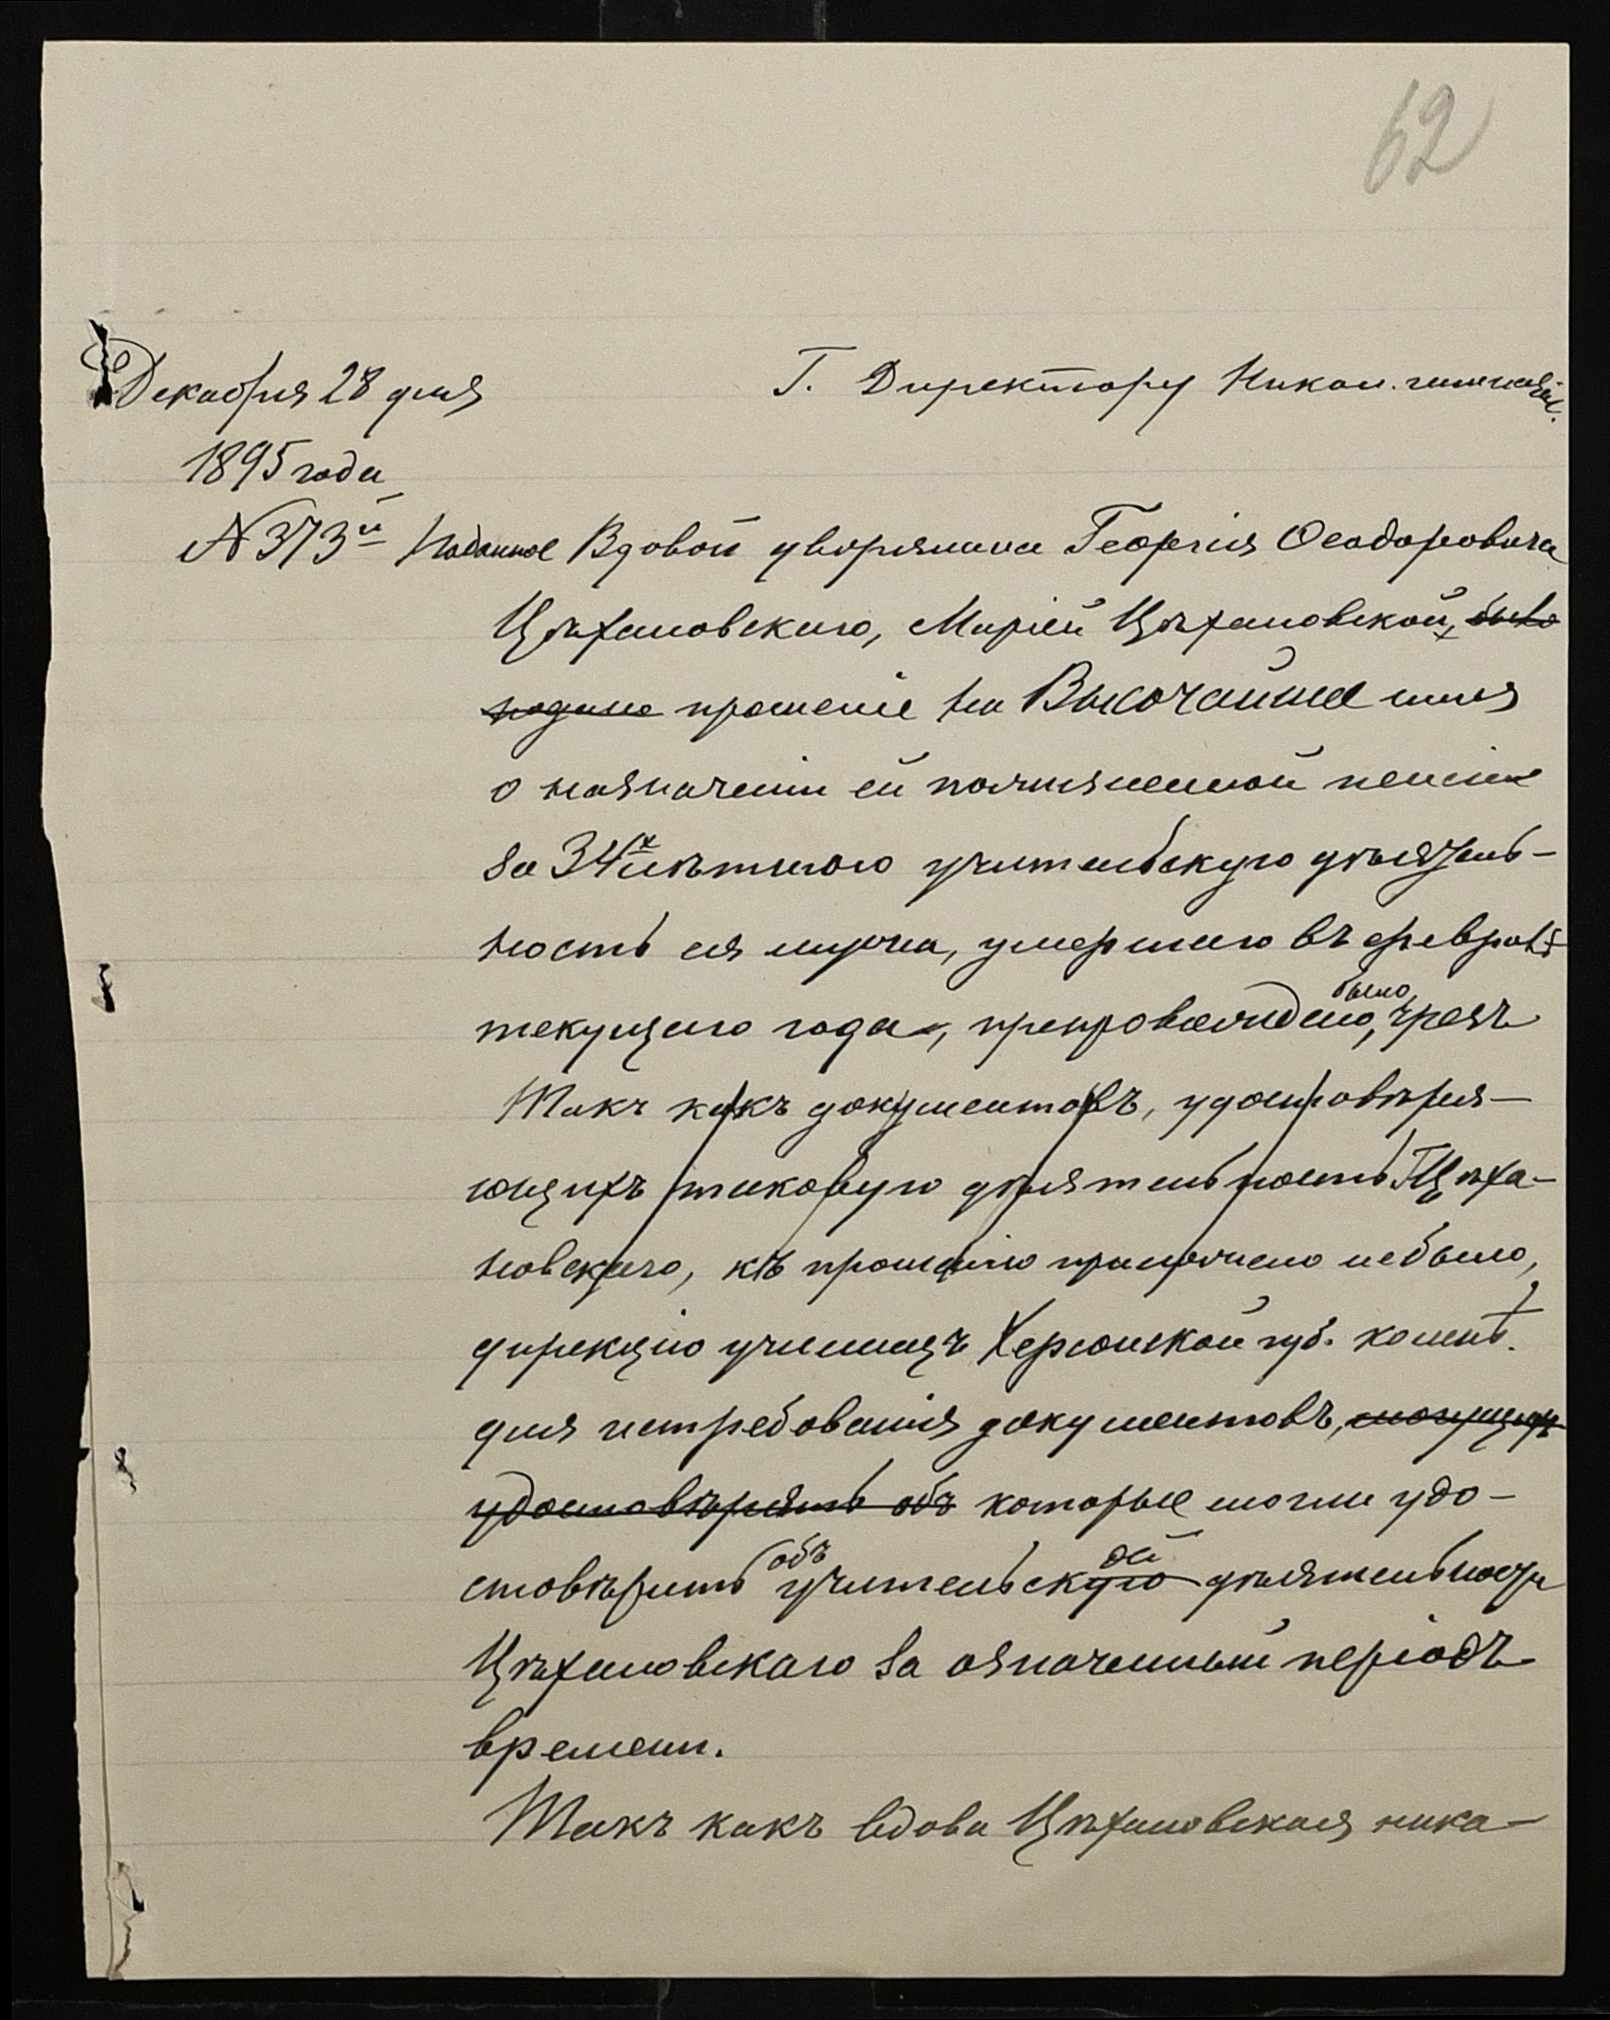 62
Декабря 28 дня
Г. Директору Никол. гимназіи.
1895 года
№ 373й Поданное Вдовой дворянина Георгія Ѳеодоровича
Цѣхановскаго, Маріей Цѣхановской, было
подано прошеніе на Высочайшее имя
о назначеніи ей пожизненной пенсіи
за 34х лѣтнюю учительскую дѣятель-
ность ея мужа, умершаго въ февралѣ
текущаго года, препровождено, было чрезъ
Такъ какъ документовъ, удостовѣря-
ющихъ таковую дѣятельность Г. Цѣха-
новскаго, къ прошенію приложено небыло,
дирекцію училищъ Херсонской губ.
для истребованія документовъ, могущихъ
удостовѣрять объ которые могли удо-
стовѣрить объ учительскую ой дѣятельности
Цѣхановскаго за означенный періодъ
времени.
Такъ какъ вдова Цѣхановская ника-